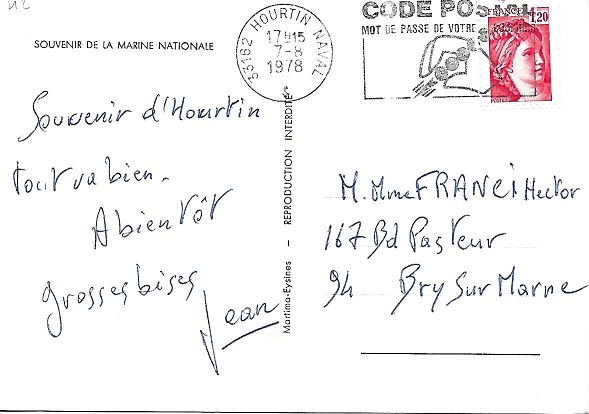 SOUVENIR DE LA MARINE NATIONALE
33162 HOURTIN NAVAL
17H15
7-8
1978
CODE POSTAL
MOT DE PASSE DE VOTRE
FRANCE 1,20
POSTES
Souvenir d'Hourtin
tout va bien.
A bientôt
grosses bises
Jean
Martima-Eysines — REPRODUCTION INTERDITE
M. Mme FRANCI Hector
167 Bd Pasteur
94 Bry Sur Marne